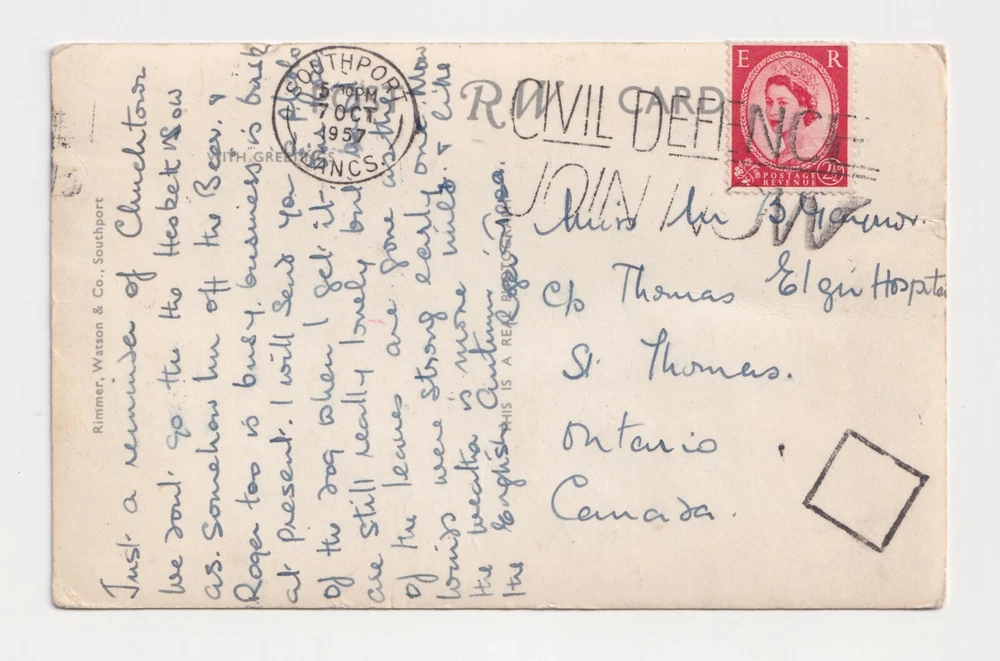 Rimmer, Watson & Co., Southport
WITH GREETINGS
RW CARD
THIS IS A REAL PHOTOGRAPH
SOUTHPORT
5 -10PM
7 OCT
1957
LANCS.
CIVIL DEFENCE
JOIN NOW
E R
POSTAGE
REVENUE
2½
Just a reminder of Churchtown
We don't go to the Hesket now
as somehow I'm off the Beer, &
Roger too is busy, business is brisk
at present. I will send you a Photo
of the dog when I get it.
are still really lovely but
of the leaves are gone as the
winds were strong early on. Now
the weather is more mild. & like
the English Autumn
Roger
Miss M
c/o Thomas Elgin Hospital
St Thomas.
Ontario
Canada.